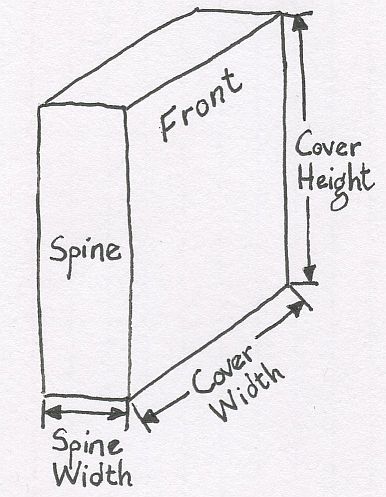 Front
Cover
Height
Spine
Cover
Width
Spine
Width